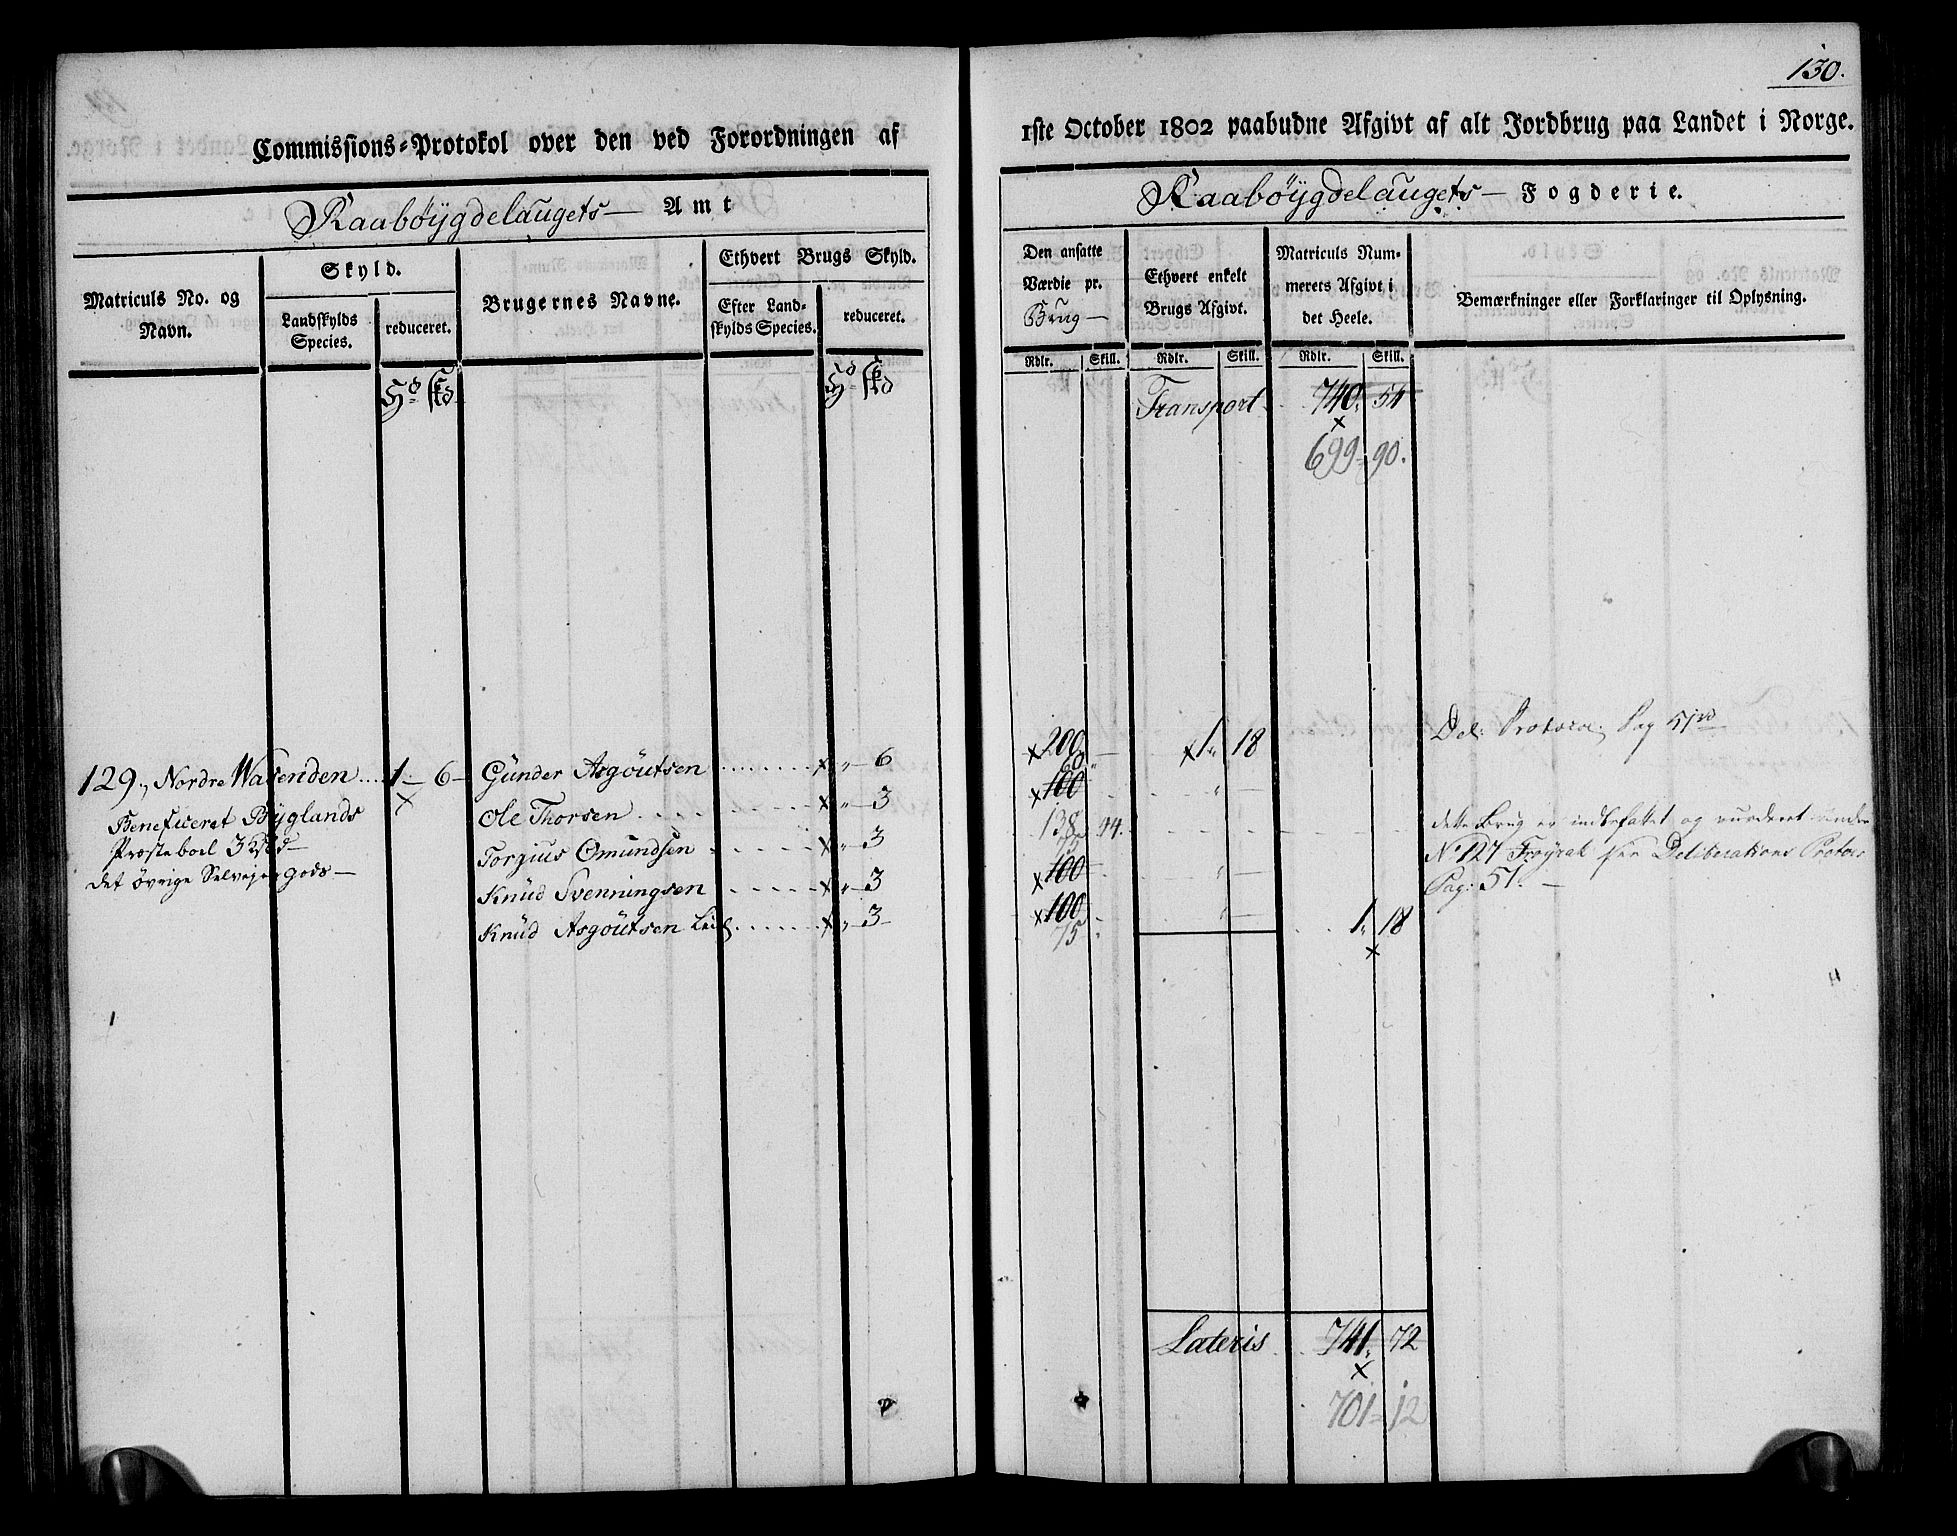 130.
Commissions-Protokol over den ved Forordningen af
1ste October 1802 paabudne Afgivt af alt Jordbrug paa Landet i Norge.
Raabøygdelaugets Amt
Raabøygdelaugets Fogderie.
Matriculs No. og Navn.
Skyld.
Landskylds Species.
reduceret.
Brugernes Navne.
Ethvert Brugs Skyld.
Efter Landskylds Species.
reduceret.
Den ansatte Værdie pr. Brug
Ethvert enkelt Brugs Afgivt.
Matriculs Nummerets Afgivt i det Heele.
Bemærkninger eller Forklaringer til Oplysning.
Rdlr. Skill. Rdlr. Skill. Rdlr. Skill.
Hd Skd
Hd Skd
Transport 740. 54
699 = 90.
Del: Protocol Pag 51
129., Nordre Wasenden 1 - 6 - Günder Asgoutsen × " - 6 × 200 - × 1. 18
60
Beneficeret Byglands Ole Thorsen × " - 3 × 100 "
138 94.
Præsteboel 3 Torgius Omundsen × " - 3
75
dette Brug er indbefattet og vurderet under
No 127 Frøyrak per Deliberations Protoc
Pag: 51. -
det øvrige Selvejer gods - Knüd Svenningsen × " - 3 × 100 "
Knüd Asgoutsen × " - 3 × 100 " 1. 18
75
Lateris 741. 72
701 = 12